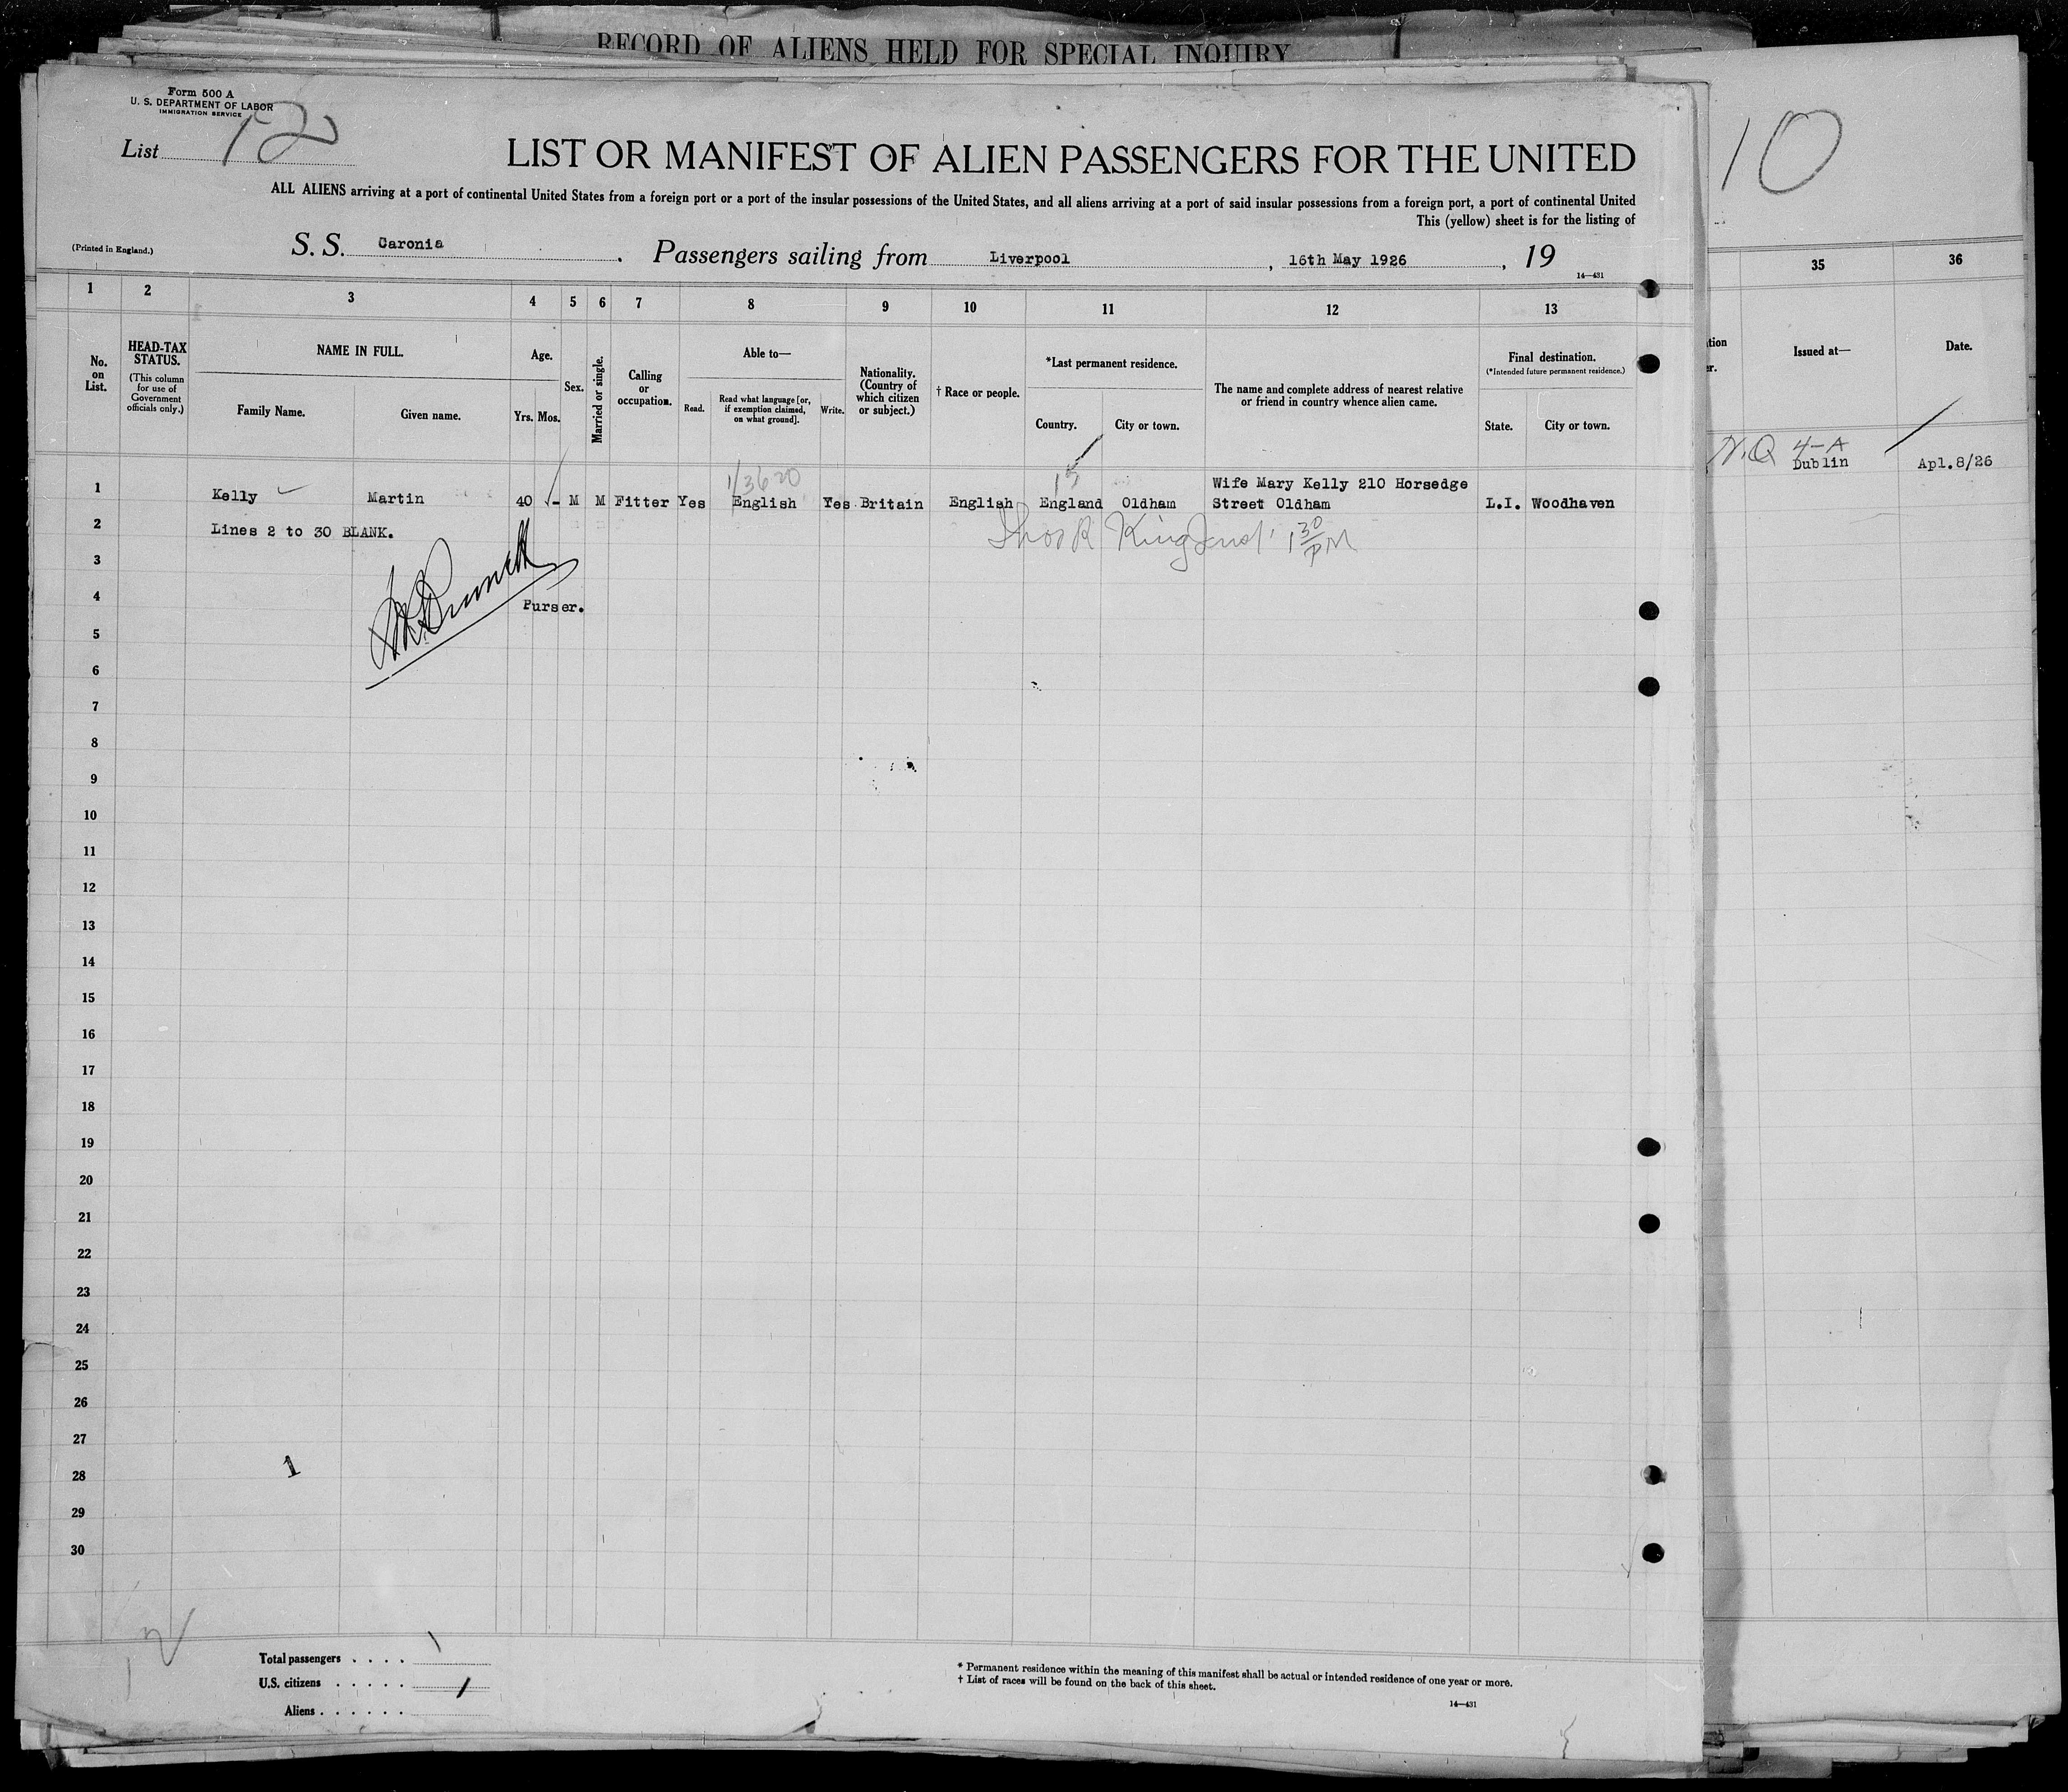 RECORD OF ALIENS HELD FOR SPECIAL INQUIRY
Form 500 A
U. S. DEPARTMENT OF LABOR
IMMIGRATION SERVICE
List
LIST OR MANIFEST OF ALIEN PASSENGERS FOR THE UNITED
10
ALL ALIENS arriving at a port of continental United States from a foreign port or a port of the insular possessions of the United States, and all aliens arriving at a port of said insular possessions from a foreign port, a port of continental United
This (yellow) sheet is for the listing of
(Printed in England.) S. S. Caronia . Passengers sailing from Liverpool , 16th May 1926 , 19
14—431
1 2 3 4 5 6 7 8 9 10 11 12 13 35 36
No. on List.
HEAD-TAX STATUS.
(This column for use of Government officials only.)
NAME IN FULL.
Family Name. Given name.
Age.
Yrs. Mos.
Sex.
Married or single.
Calling or occupation.
Able to—
Read. Read what language [or, if exemption claimed, on what ground]. Write.
Nationality. (Country of which citizen or subject.)
† Race or people.
*Last permanent residence.
Country. City or town.
The name and complete address of nearest relative or friend in country whence alien came.
Final destination.
(*Intended future permanent residence.)
State. City or town.
Issued at—
Date.
N.Q 4-A
Dublin Apl.8/26
1/3620
15
1 Kelly Martin 40 - M M Fitter Yes English Yes Britain English England Oldham Wife Mary Kelly 210 Horsedge Street Oldham L.I. Woodhaven
2 Lines 2 to 30 BLANK.
1 30 PM
3
4 Purser.
5
6
7
8
9
10
11
12
13
14
15
16
17
18
19
20
21
22
23
24
25
26
27
28 1
29
30
Total passengers . . . .
U.S. citizens . . . . .
Aliens . . . . . .
* Permanent residence within the meaning of this manifest shall be actual or intended residence of one year or more.
† List of races will be found on the back of this sheet.
14—431